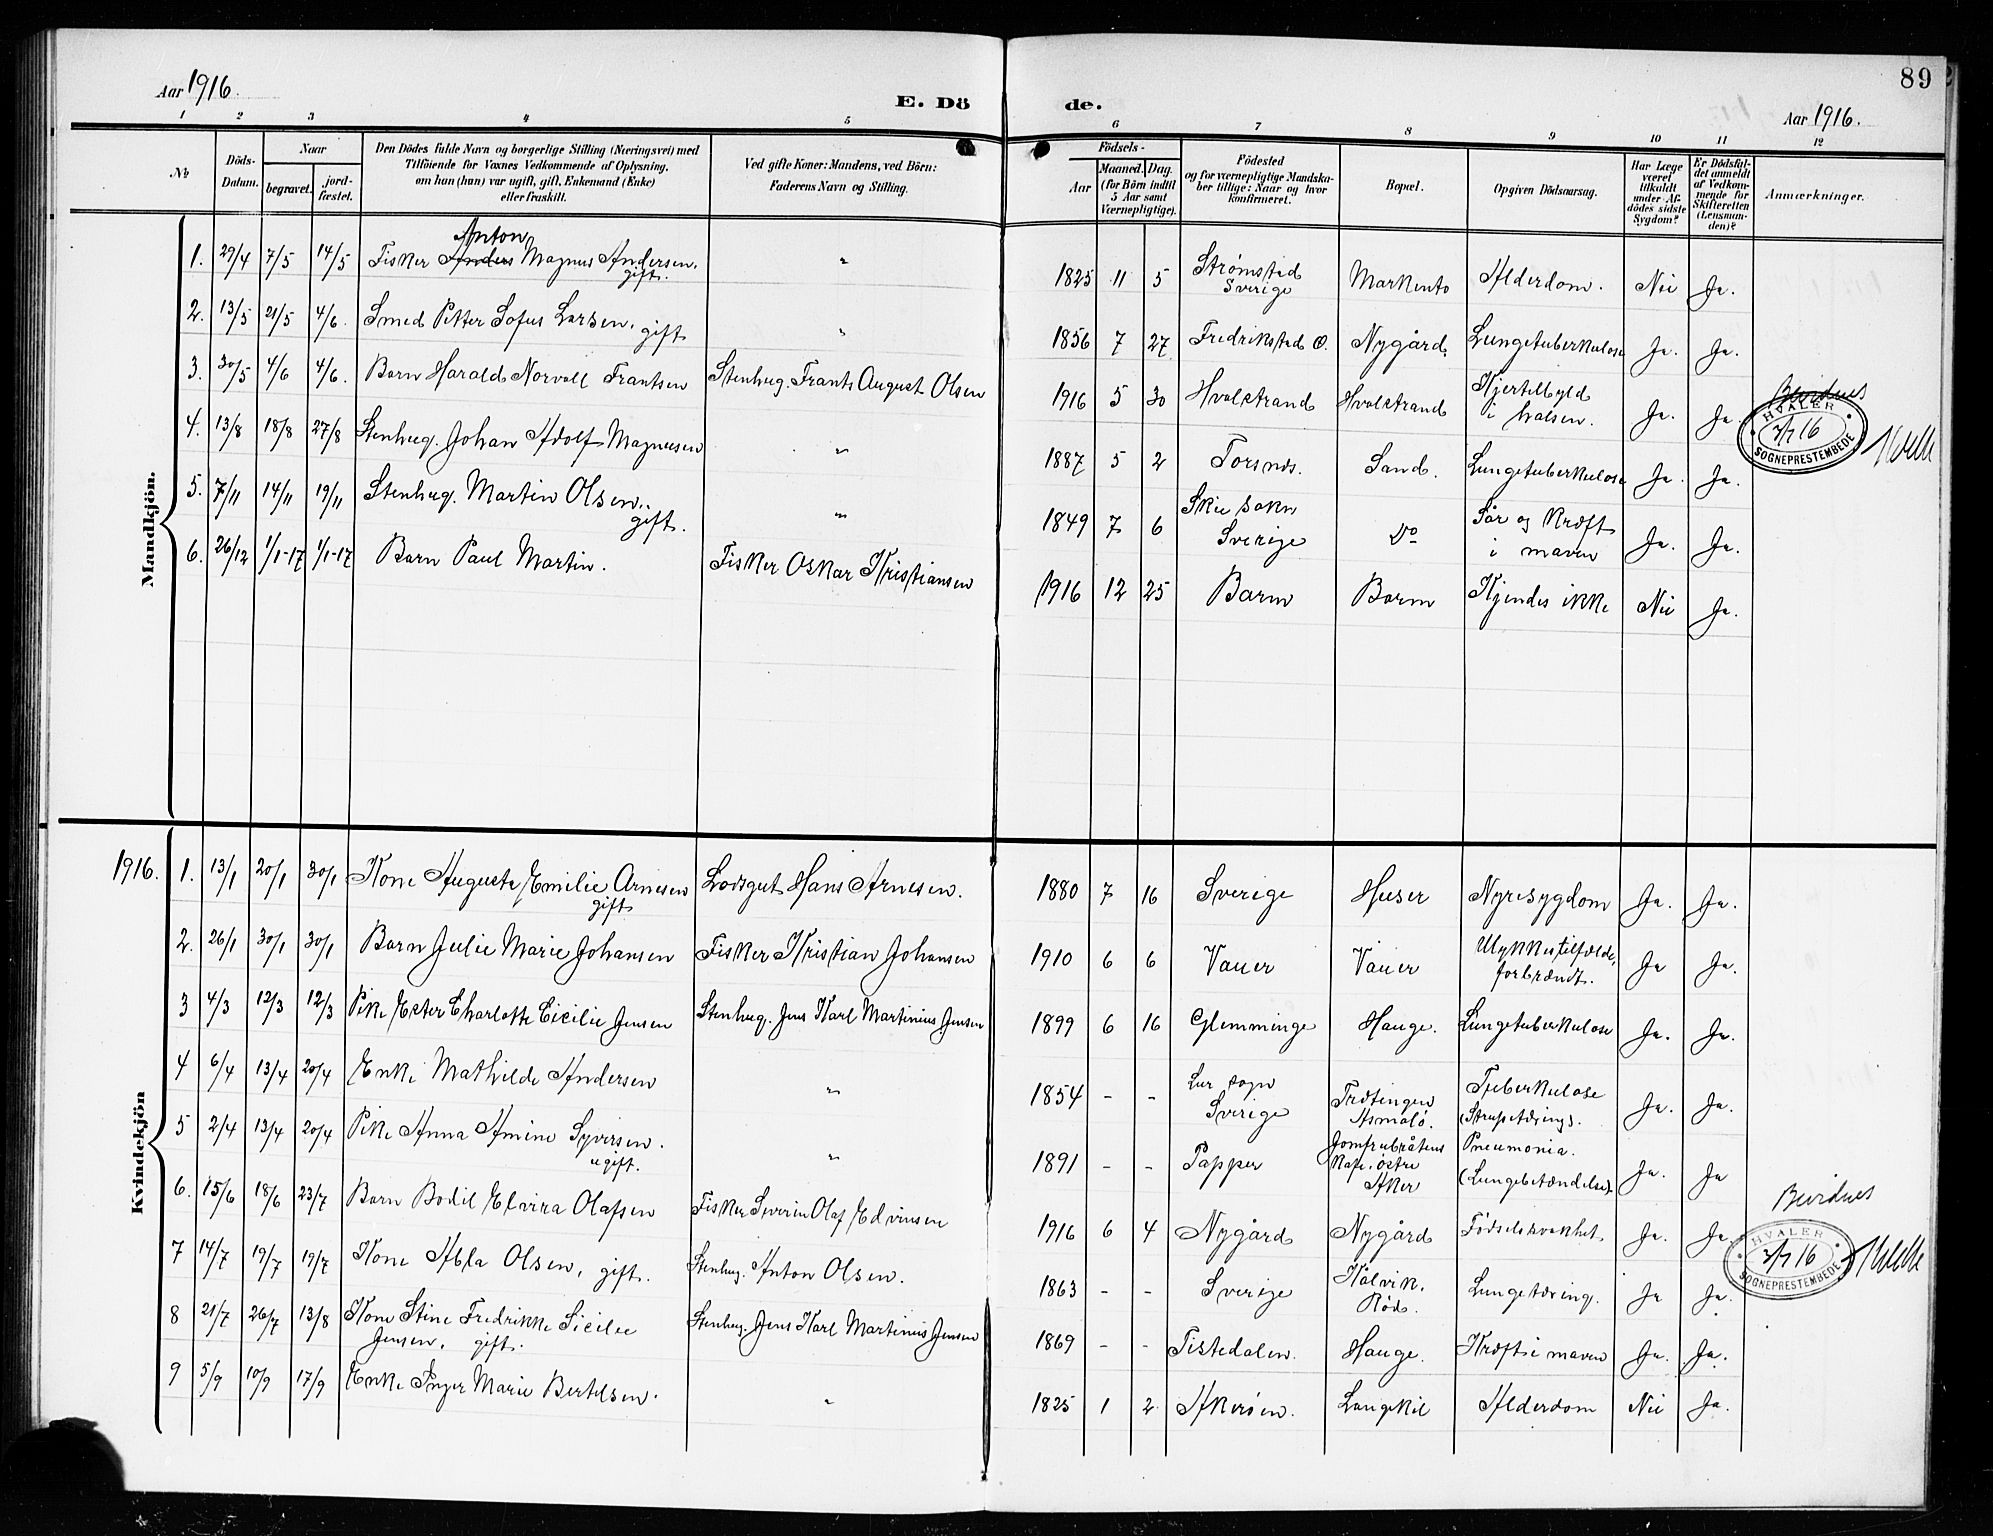 89
Aar 1916.
E. Dö de.
Aar 1916.
1 2 3 4 5 6 7 8 9 10 11 12
№
Döds-Datum.
Naar
begravet.
jord-fæstet.
Den Dödes fulde Navn og borgerlige Stilling (Næringsvei) med
Tilföiende for Voxnes Vedkommende af Oplysning,
om han (hun) var ugift, gift, Enkemand (Enke)
eller fraskilt.
Ved gifte Koner: Mandens, ved Börn:
Faderens Navn og Stilling.
Födsels-
Aar
Maaned. Dag.
(for Börn indtil
5 Aar samt
Værnepligtige).
Födested
og for værnepligtige Mandska-
ber tillige: Naar og hvor
konfirmeret.
Bopæl.
Opgiven Dödsaarsag.
Har Læge
været
tilkaldt
under Af-
dödes sidste
Sygdom?
Er Dödsfal-
det anmeldt
af Vedkom-
mende for
Skifteretten
(Lensman-
den)?
Anmærkninger.
Mandkjön.
Anton
1. 29/4 7/5 14/5 Fisker Anders Magnus Andersen. gift. " 1825 11 5 Strømstad Sverige Markento Alderdom. Nei Ja.
2. 13/5 21/5 4/6. Smed Petter Sofus Larsen. gift " 1856 7 27 Fredrikstad O. Nygård. Lungetuberkulose Ja. Ja.
3. 30/5 4/6 4/6. Barn Harald Norvall Frantsen Stenhug. Frants August Olsen 1916 5 30 Hvalstrand Hvalstrand Kjertelbyld i halsen. Ja. Ja
Bevidnes
HVALER
2/7 16
SOGNEPRESTEMBEDE
4. 13/8 18/8 27/8 Stenhug. Johan Adolf Magnusen " 1887 5 2 Torsnes. Sand. Lungetuberkulose Ja. Ja.
5. 7/11 14/11 19/11 Stenhug. Martin Olsen. gift. " 1849 7 6 Skee sokn Sverige Do Sår og Kræft i maven Ja. Ja.
6. 26/12 1/1-17 1/1-17 Barn Paul Martin. Fisker Oskar Kristiansen 1916 12 25 Barm Barm Kjendes ikke Nei Ja.
Kvindekjön
1916. 1. 13/1 20/1 30/1 Kone Augusta Emilie Arnesen gift Lodsgut Hans Arnesen. 1880 7 16 Sverige Huser Nyresygdom Ja. Ja.
2. 26/1 30/1 30/1 Barn Julie Marie Johansen Fisker Kristian Johansen 1910 6 6 Vauer Vauer Ulykkestilfælde, forbrændt. Ja Ja.
3 4/3 12/3 12/3 Pike Ester Charlotte Cicilie Jensen Stenhug. Jens Karl Martinius Jensen 1899 6 16 Glemminge Hauge. Lungetuberkulose Ja. Ja.
4 6/4 13/4 20/4 Enke Mathilde Andersen " 1854 - - Lur sogn Sverige Trætingen Asmalö. Tuberkulose (Strupetæring). Ja. Ja.
5 2/4 13/4 20/4 Pike Anna Amine Syversen. ugift. " 1891 - - Papper Jomfrubråtens Kafe. östre Aker Pneumonia. (Lungebetændelse). Ja. Ja
6. 15/6 18/6 23/7 Barn Bodil Elvira Olafsen Fisker Severin Olaf Edvinsen 1916 6 4 Nygård Nygård Fødselssvakhet Ja. Ja
Bevidnes
HVALER
2/7 16
SOGNEPRESTEMBEDE
7 14/7 19/7 19/7 Kone Abla Olsen, gift. Stenhug. Anton Olsen. 1863 - - Sverige Kålvik, Rød. Lungetæring. Ja Ja.
8 21/7 26/7 13/8 Kone Stine Fredrikke Sicilie Jensen. gift. Stenhug. Jens Karl Martinius Jensen 1869 - - Tistedalen. Hauge. Kræft i maven Ja. Ja.
9 5/9 10/9 17/9 Enke Inger Marie Bertelsen. " 1825 1 2 Akerøen. Langekil Alderdom Nei Ja.